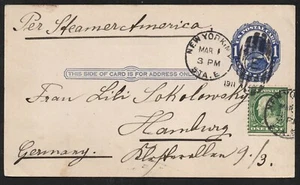 Per Steamer America
NEW YORK, N.Y.
MAR 1
3 PM
1911
STA. E
POSTAL CARD
1
THIS SIDE OF CARD IS FOR ADDRESS ONLY
Frau Lili Sokolowsky
Hamburg
Germany. Klosterallee 9./3.